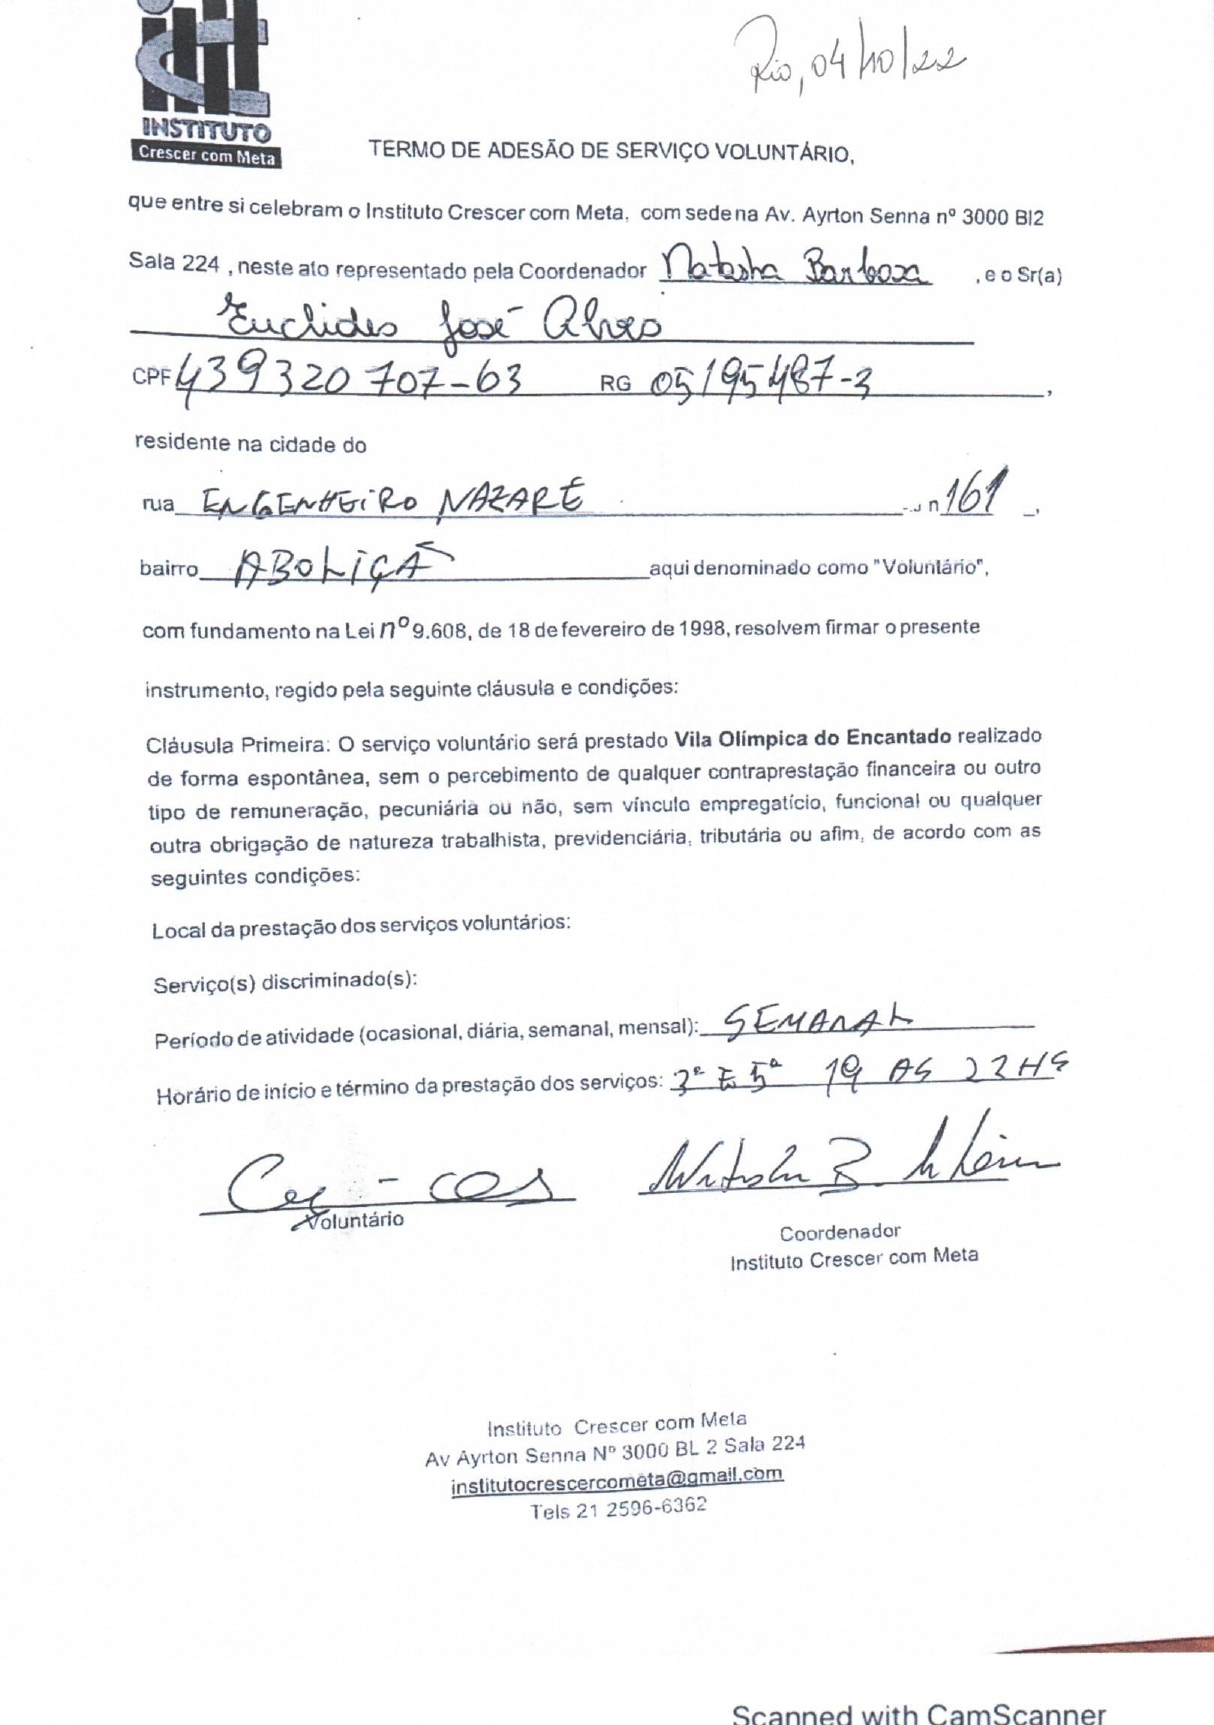 Rio, 04/10/22
INSTITUTO
Crescer com Meta
TERMO DE ADESÃO DE SERVIÇO VOLUNTÁRIO,
que entre si celebram o Instituto Crescer com Meta, com sede na Av. Ayrton Senna nº 3000 Bl2
Sala 224 , neste ato representado pela Coordenador Natasha Barboza , e o Sr(a)
Euclides José Alves
CPF 439320707-63 RG 05195487-3 ,
residente na cidade do
rua ENGENHEIRO NAZARÉ n 161 ,
bairro ABOLIÇÃ aqui denominado como "Voluntário",
com fundamento na Lei nº 9.608, de 18 de fevereiro de 1998, resolvem firmar o presente
instrumento, regido pela seguinte cláusula e condições:
Cláusula Primeira: O serviço voluntário será prestado Vila Olímpica do Encantado realizado
de forma espontânea, sem o percebimento de qualquer contraprestação financeira ou outro
tipo de remuneração, pecuniária ou não, sem vínculo empregatício, funcional ou qualquer
outra obrigação de natureza trabalhista, previdenciária, tributária ou afim, de acordo com as
seguintes condições:
Local da prestação dos serviços voluntários:
Serviço(s) discriminado(s):
Período de atividade (ocasional, diária, semanal, mensal): SEMANAL
Horário de início e término da prestação dos serviços: 3ª E 5ª 19 AS 22HS
Voluntário
Coordenador
Instituto Crescer com Meta
Instituto Crescer com Meta
Av Ayrton Senna Nº 3000 BL 2 Sala 224
institutocrescercometa@gmail.com
Tels 21 2596-6362
Scanned with CamScanner